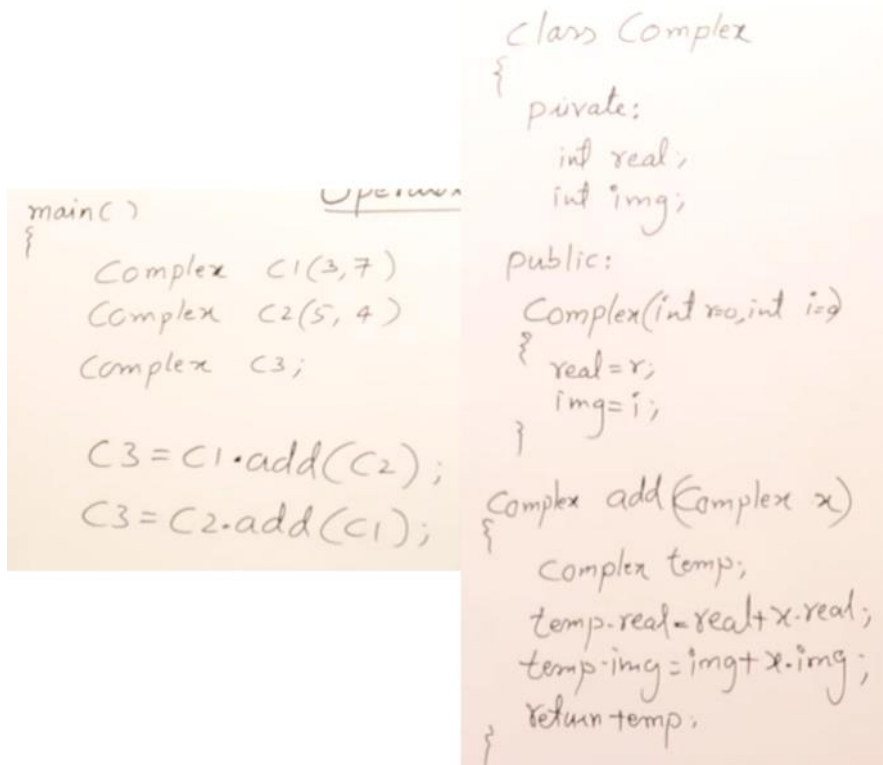 main()
{
Complex C1(3,7)
Complex C2(5,4)
Complex C3;
C3=C1.add(C2);
C3=C2.add(C1);
class Complex
{
private:
int real;
int img;
public:
Complex(int r=0,int i=0)
{
real=r;
img=i;
}
Complex add(Complex x)
{
Complex temp;
temp.real=real+x.real;
temp.img=img+x.img;
return temp;
}